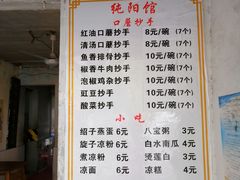 纯阳馆
口蘑抄手
红油口蘑抄手 8元/碗(7个)
清汤口蘑抄手 8元/碗(7个)
鱼香排骨抄手 10元/碗(7个)
椒香牛肉抄手 10元/碗(7个)
泡椒鸡杂抄手 10元/碗(7个)
豇豆抄手 8元/碗(7个)
酸菜抄手 8元/碗(7个)
小吃
绍子蒸蛋 6元 八宝粥 3元
旋子凉粉 6元 白水南瓜 4元
煮凉粉 6元 烫莲白 4元
凉面 6元 凉糕 4元